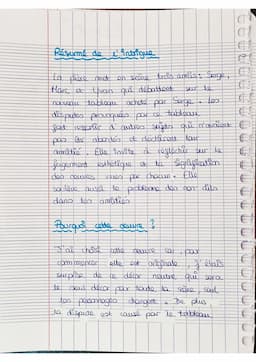 Résumé de l'intrigue
La pièce met en scène trois amis : Serge,
Marc et Yvan qui débattent sur le
nouveau tableau acheté par Serge. Les
disputes provoquées par ce tableau
font ressortir d'autres sujets qui n'avaient
pas été abordés et déchirent leur
amitié. Elle invite à réfléchir sur le
jugement esthétique et la signification
des œuvres pour chacun. Elle
soulève aussi le problème des non dits
dans les amitiés
Pourquoi cette œuvre ?
J'ai choisi cette œuvre car, pour
commencer elle est originale, j'étais
surprise de ce décor neutre qui sera
le seul décor pour toute la scène, seul
les personnages changent. De plus,
la dispute est causé par le tableau